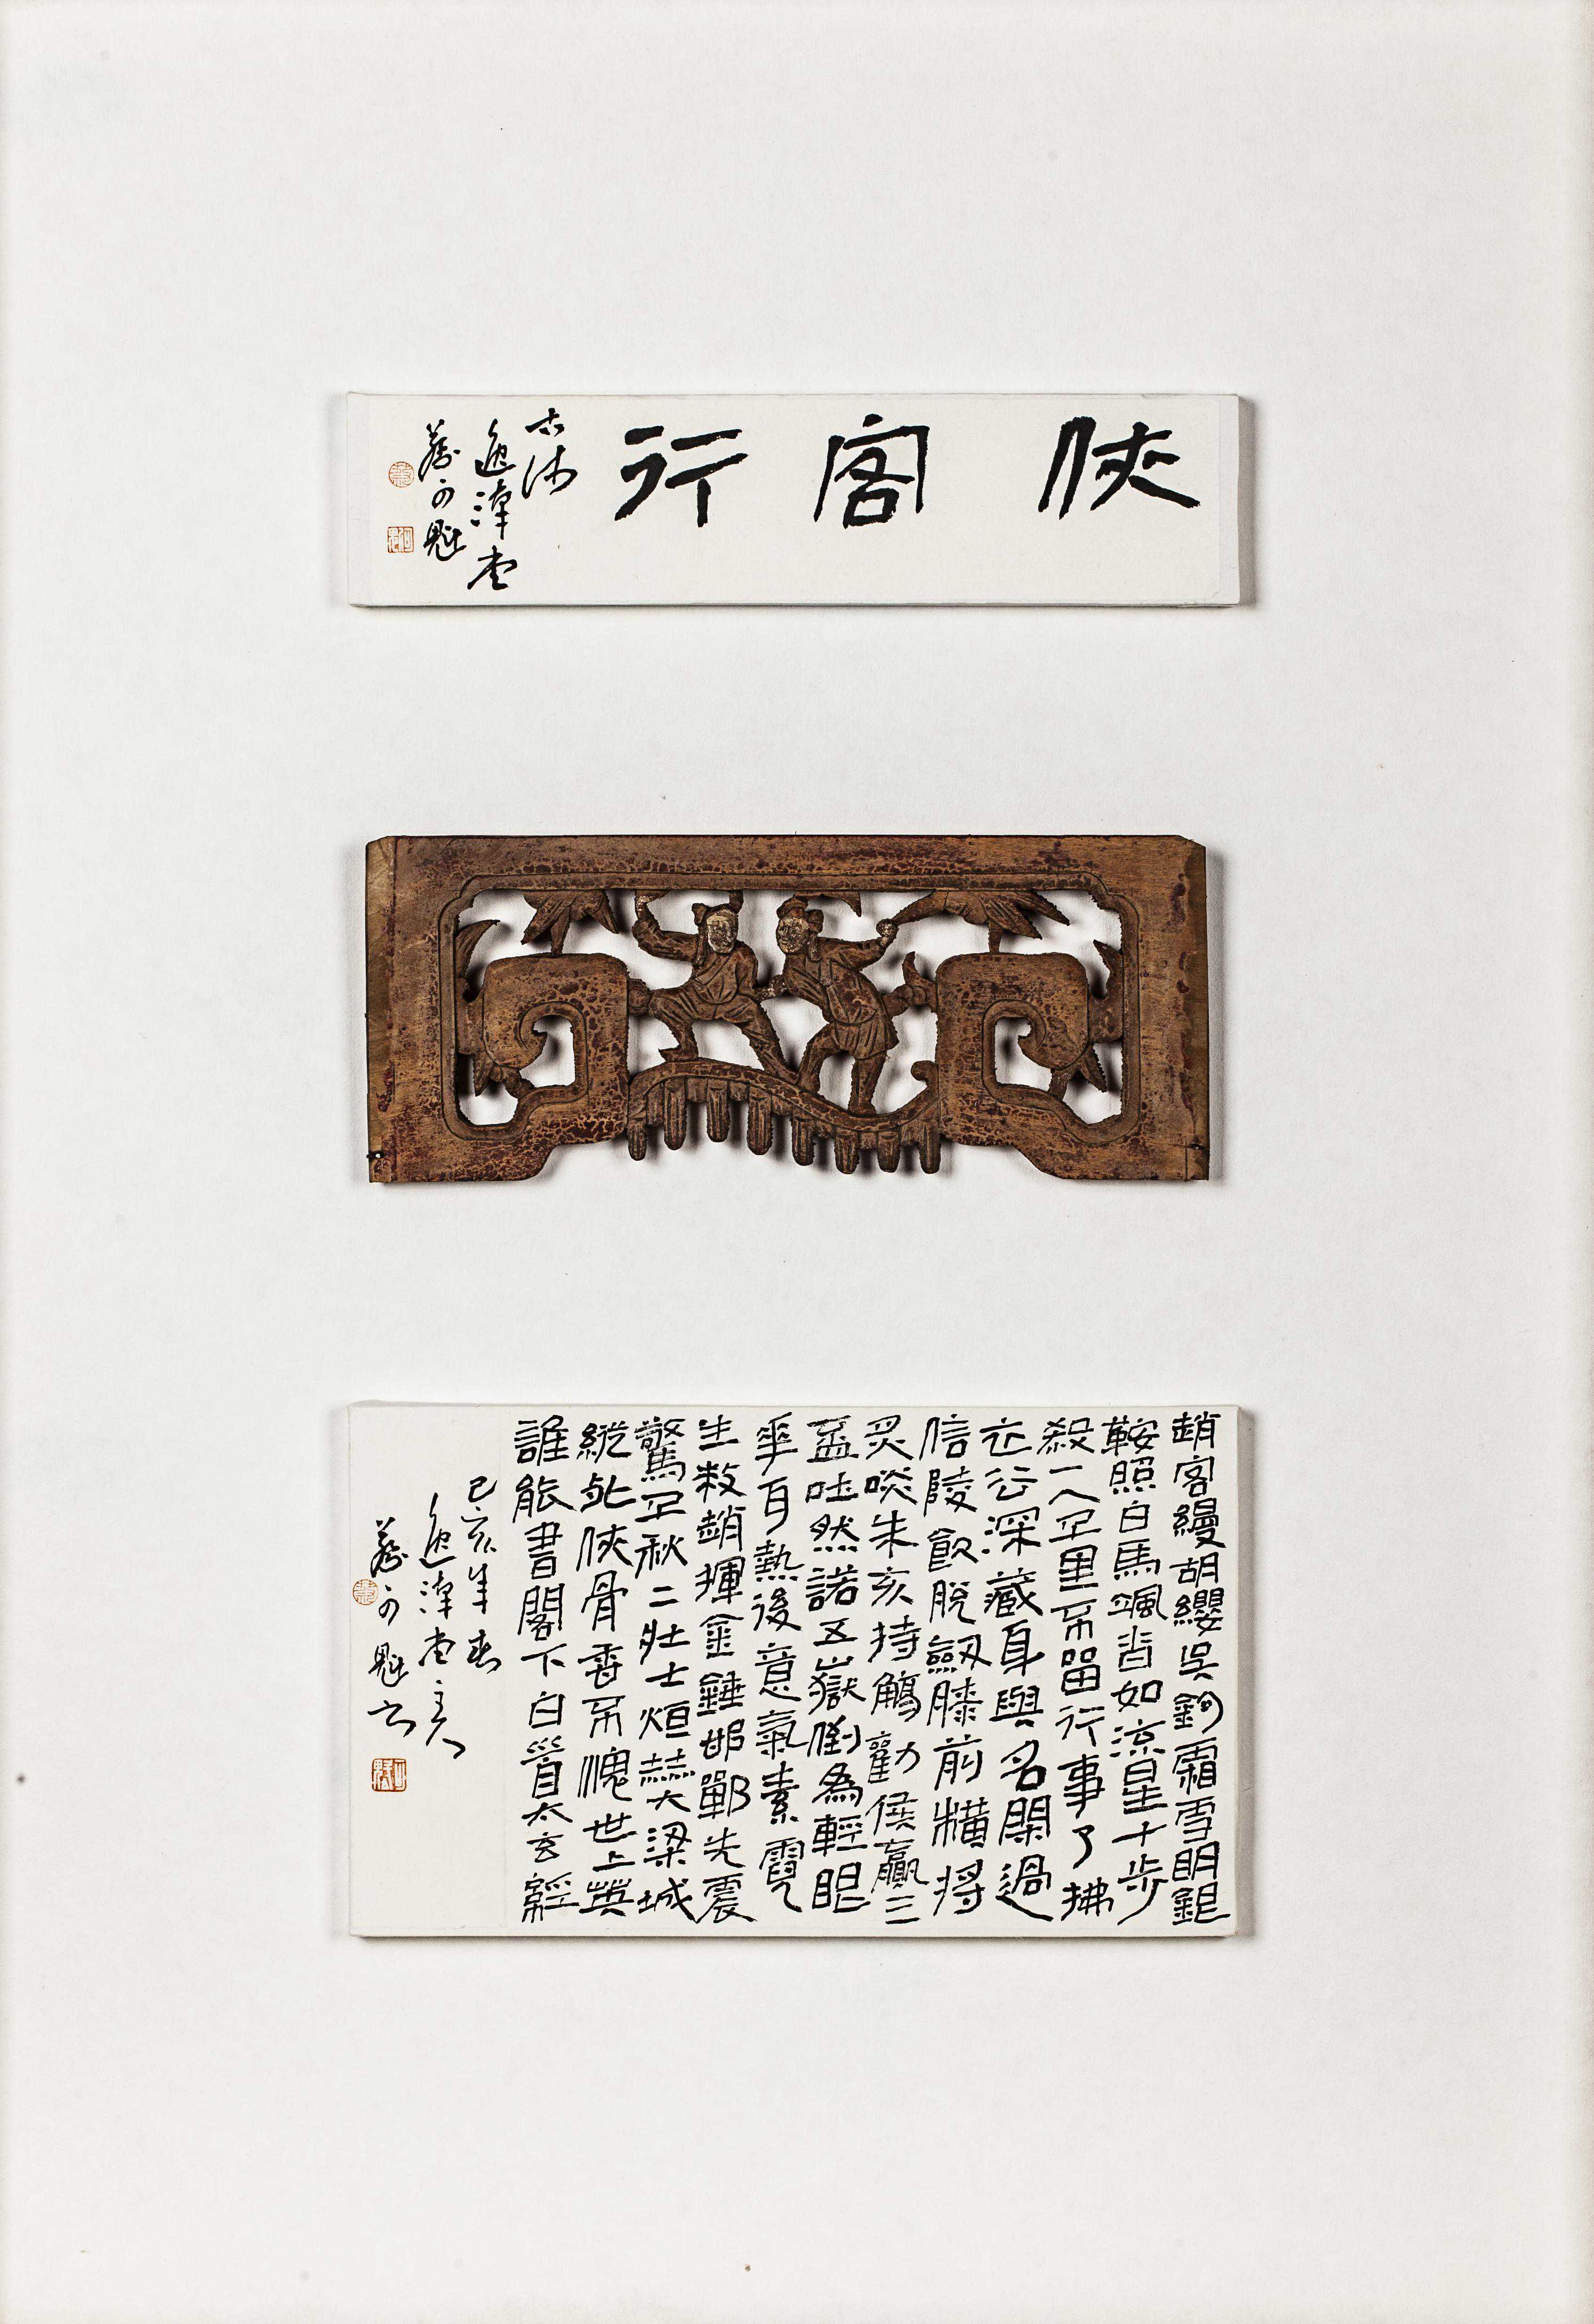 俠客行
趙客縵胡纓吳鉤霜雪明銀
鞍照白馬颯沓如流星十步
殺一人千里不留行事了拂
衣去深藏身與名閑過
信陵飲脫劍膝前橫將
炙啖朱亥持觴勸侯嬴三
盃吐然諾五嶽倒為輕眼
華耳熱後意氣素霓
生救趙揮金錘邯鄲先震
驚千秋二壯士烜赫大梁城
縱死俠骨香不愧世上英
誰能書閣下白首太玄經
己亥年春